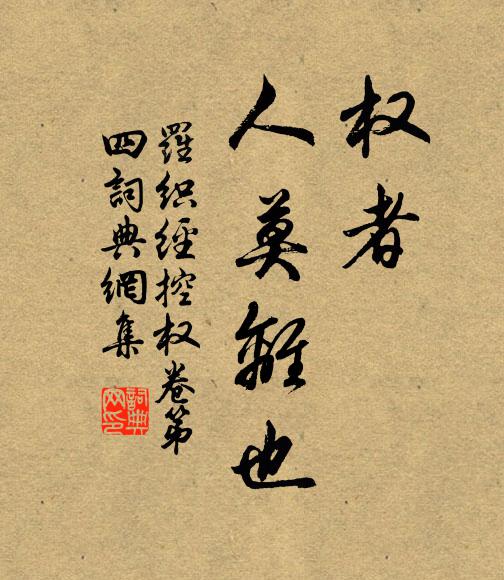 权者
人莫離也
羅织經控权卷第
四詞典網集
詞典
网印